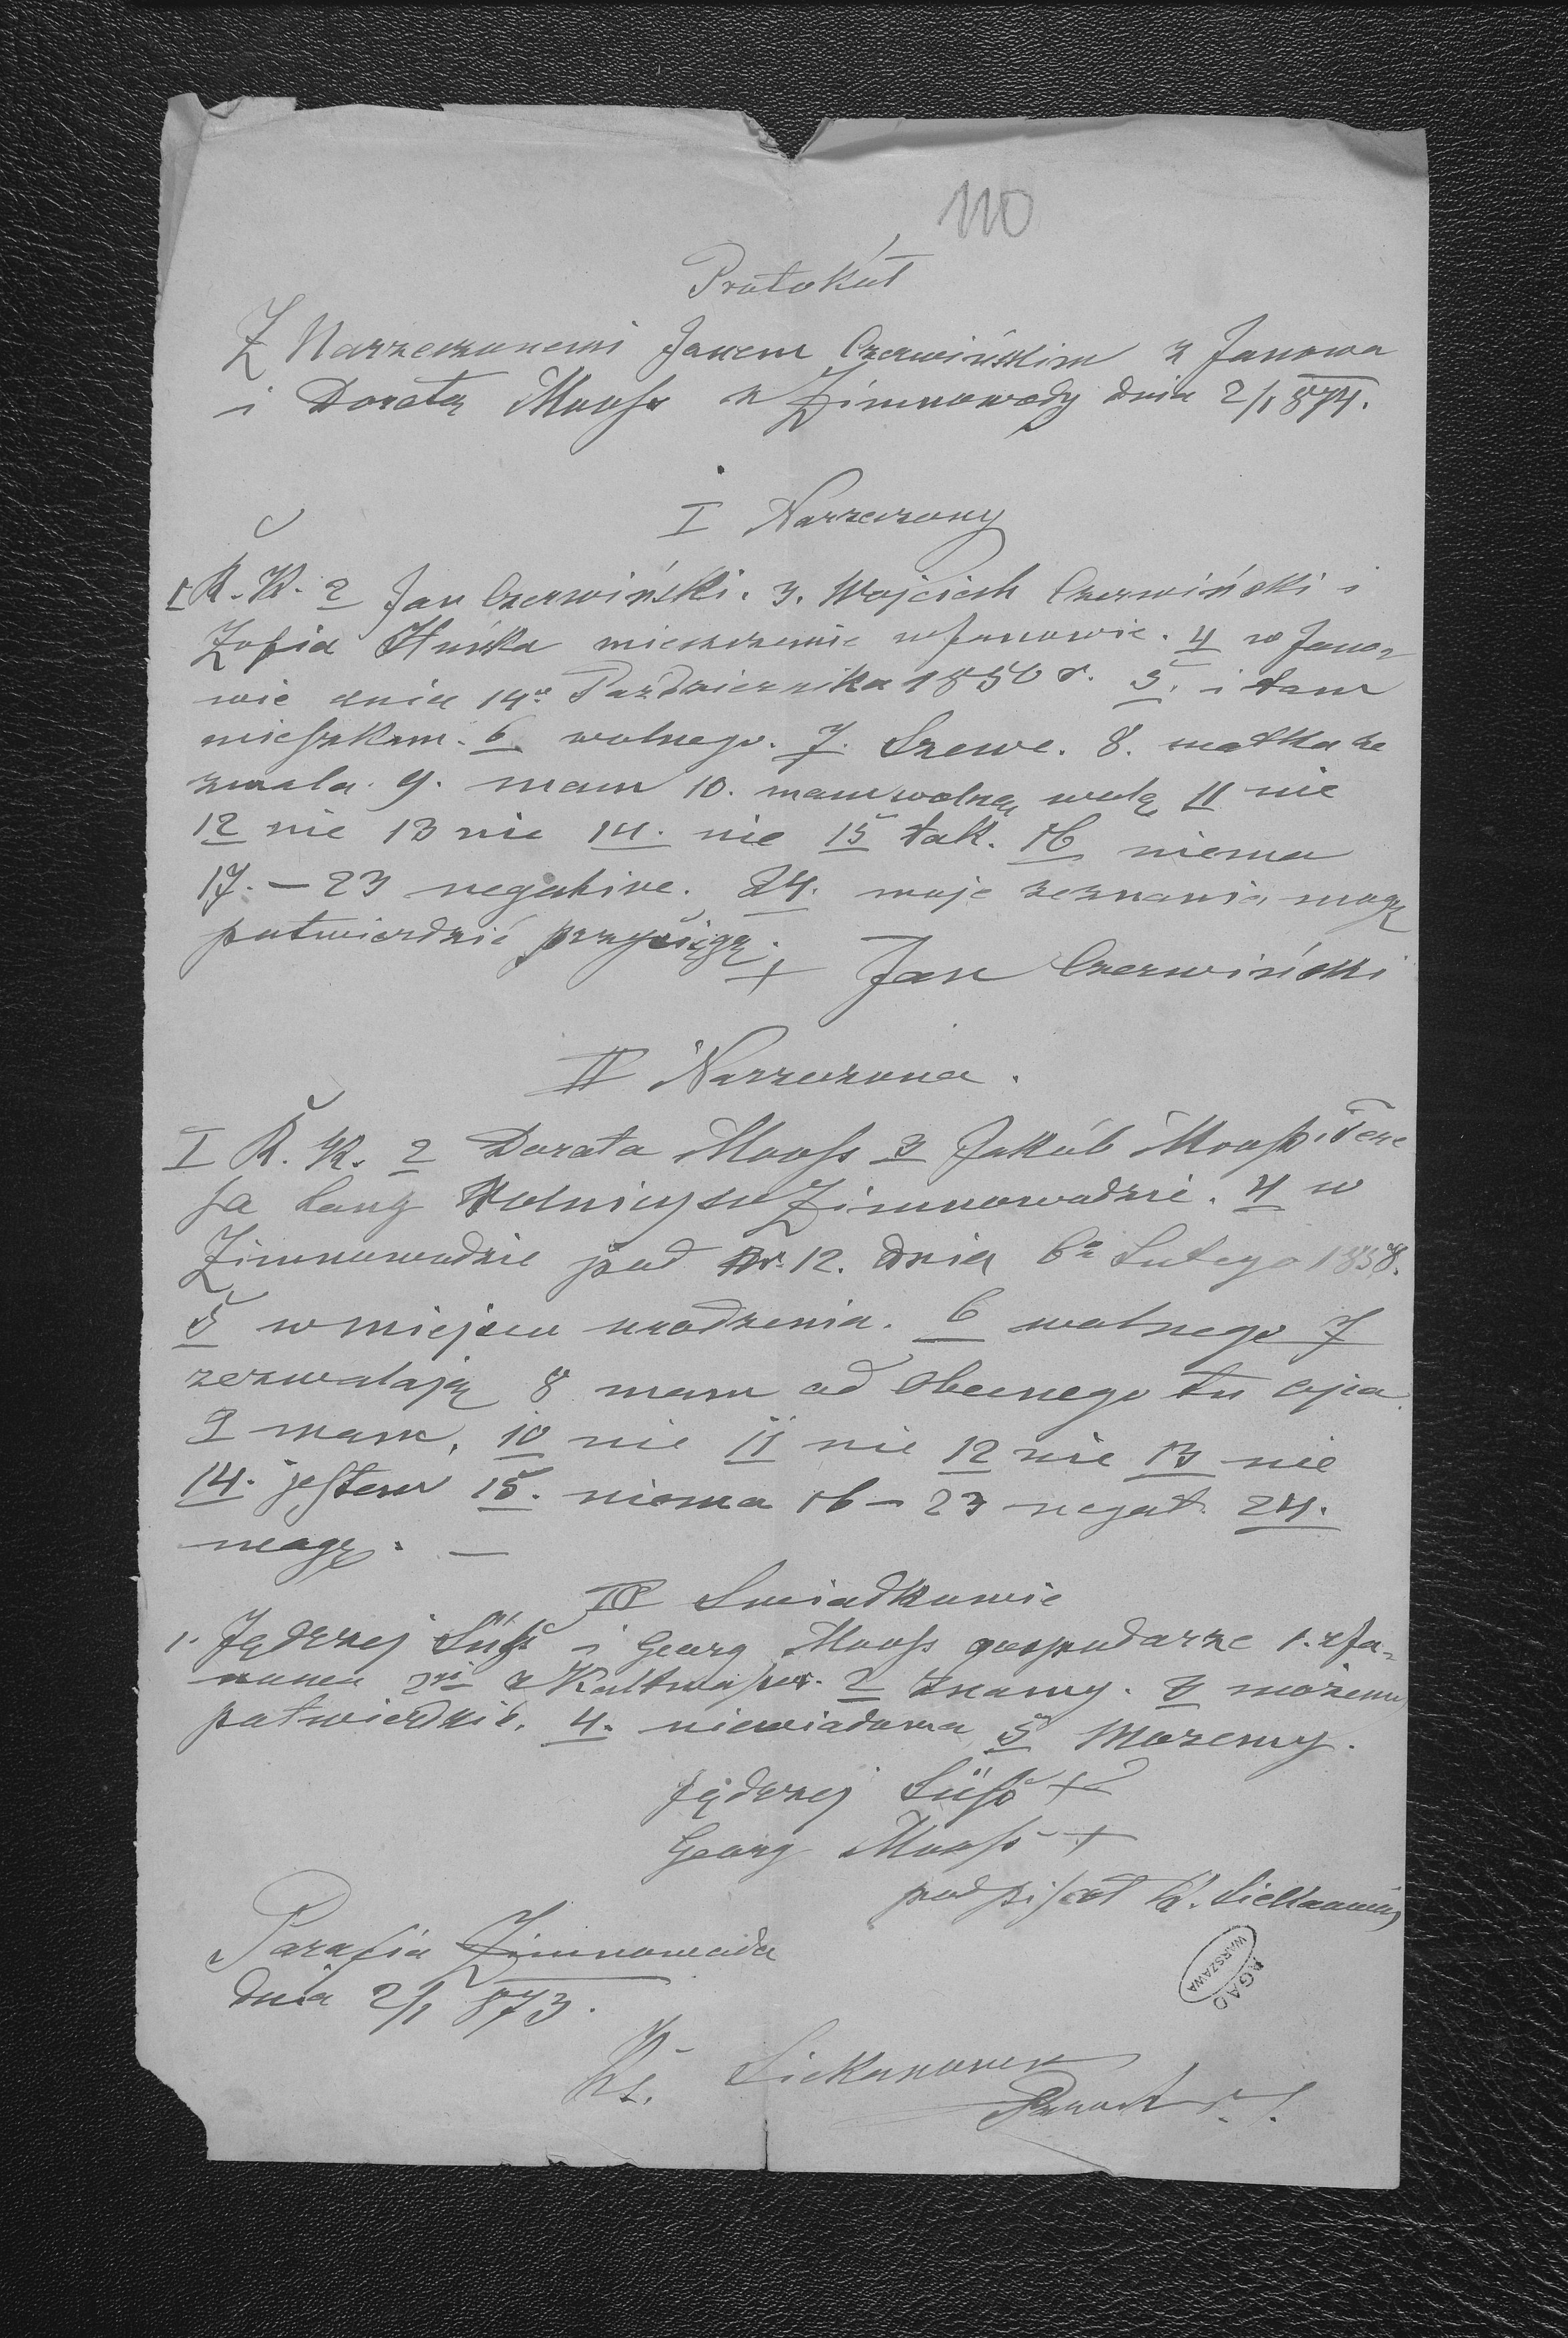 110
Protokół
Z Narzeczonemi Janem Czerwińskim z Janowa
i Dorotą Mooss z Zimnowody dnia 2/1 874.
I Narzeczony
1 Ř. K. 2 Jan Czerwiński. 3. Wojciech Czerwiński i
Zofia mieszczanie w Janowie. 4 w Jano-
wie dnia 14º Października 1850 r. 5. i tam
mieszkam. 6 wolnego. 7. Szewc. 8. matka ze
zwala. 9. mam 10. mam wolną wolę 11 nie
12 nie 13 nie 14. nie 15 tak. 16 niema
17. – 23 negative. 24. moje zeznania mogę
potwierdzić przysięgą.
+ Jan Czerwiński
II Narzeczona.
I Ř. K. 2 Dorota Mooss 3 Jakób Mooss i Tere
sa Lang Rolnicy w Zimnowodzie. 4 w
Zimnowodzie pod Nr. 12. dnia 6º Lutego 1858.
5 w miejscu urodzenia. 6 wolnego 7
zezwalają 8 mam od obecnego tu ojca
9 mam. 10 nie 11 nie 12 nie 13 nie
14. jestem 15. niema 16 – 23 negat. 24.
mogę. —
III Swiadkowie
1. Jędrzej Süss i Georg Mooss gospodarze 1. z Ja-
nowa 2ri z Kaltwasser. 2 znamy. 3 możemy
potwierdzić. 4. niewiadoma 5 Mozemy.
Jędrzej Süss +
Georg Mooss +
podpisał K.
Parafia Zimnowoda
dnia 2/1 873.
Ks.
AGAD
WARSZAWA